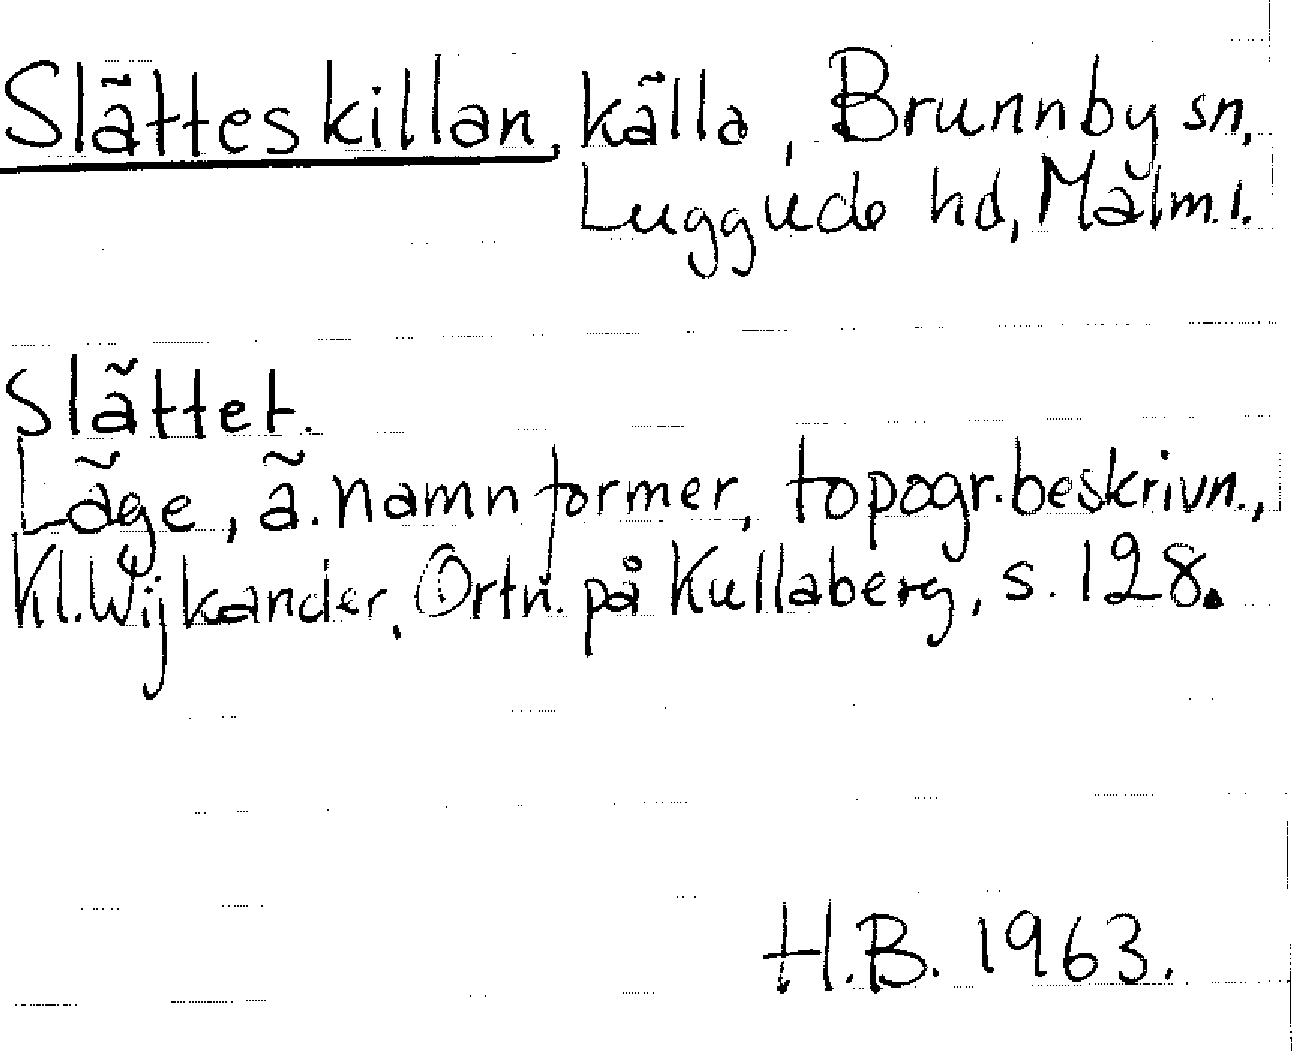 Slätteskillan, källa, Brunnby sn,
Luggude hd, Malm.l.
Slättet.
Läge, ä. namnformer, topogr. beskrivn.,
Kl. Wijkander, Ortn. på Kullaberg, s. 128.
H.B. 1963.